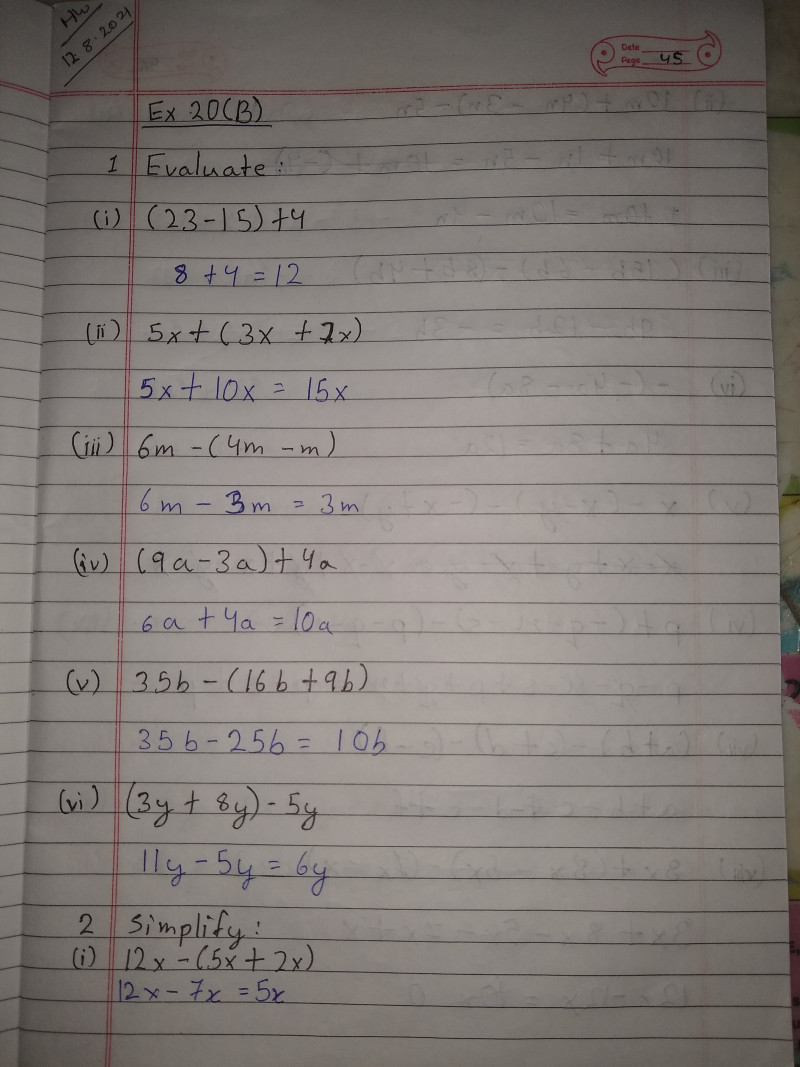 HW
12.8.2021
Date
Page 45
Ex 20(B)
1 Evaluate:
(i) (23-15)+4
8+4=12
(ii) 5x+(3x+7x)
5x+10x = 15x
(iii) 6m-(4m-m)
6m - 3m = 3m
(iv) (9a-3a)+4a
6a+4a=10a
(v) 35b-(16b+9b)
35b-25b = 10b
(vi) (3y+8y)-5y
11y-5y=6y
2 Simplify:
(i) 12x-(5x+2x)
12x-7x=5x